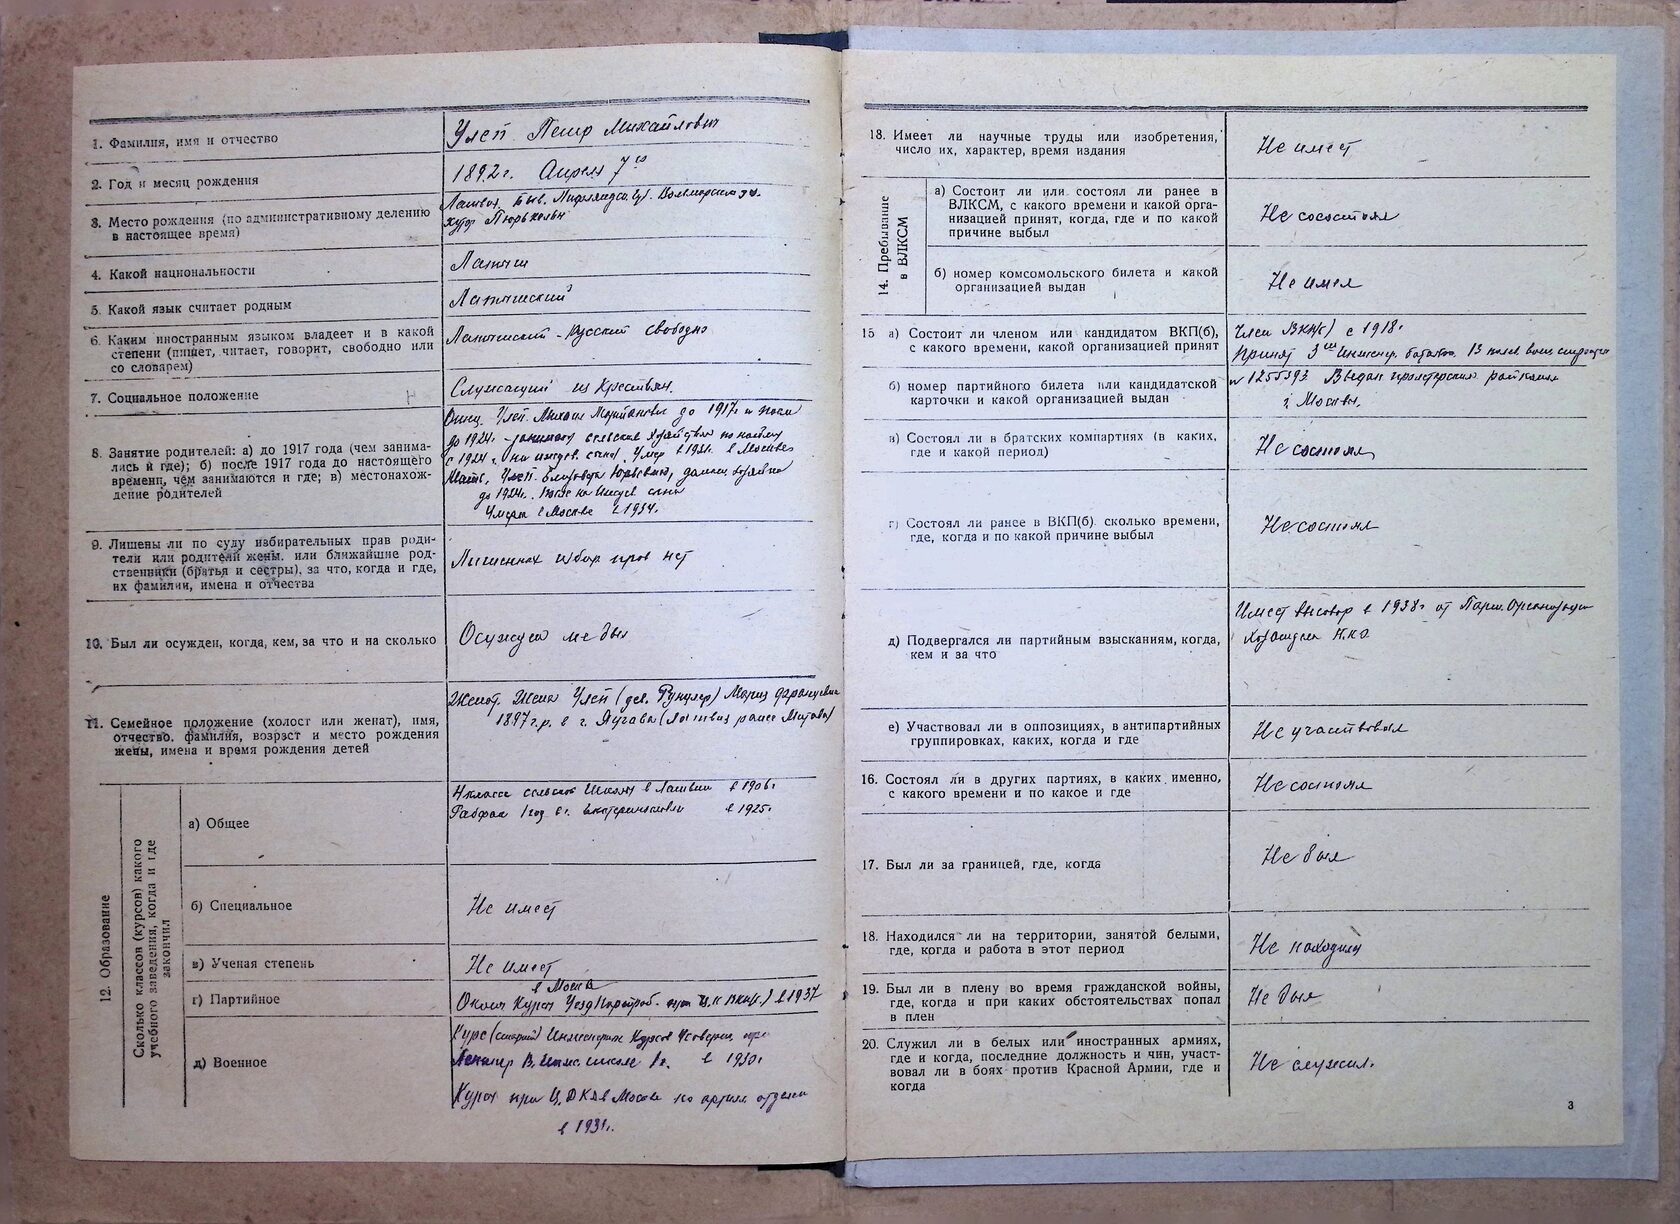 1. Фамилия, имя и отчество
Улеп. Петр Михайлович
2. Год и месяц рождения
1892 г. Апреля 7го
3. Место рождения (по административному делению
в настоящее время)
Латвия. Быв. Лифляндск. губ. Вольмарского у.
хутор
4. Какой национальности
Латыш
5. Какой язык считает родным
Латышский
6. Каким иностранным языком владеет и в какой
степени (пишет, читает, говорит, свободно или
со словарем)
Латышский - Русский свободно
7. Социальное положение
Служащий из Крестьян.
8. Занятие родителей: а) до 1917 года (чем занима-
лись и где); б) после 1917 года до настоящего
времени, чем занимаются и где; в) местонахож-
дение родителей
Отец. Улеп. Михаил до 1917 г. и после
до 1924 г. сельским хозяйством по найму
с 1924 г. на иждев. сына. Умер в 1931. в Москве
Мать, Улеп. Елизавета Юрьевна, домаш. хозяйка
до 1924 г. После на Иждев сына
Умерла в Москве в 1934 г.
9. Лишены ли по суду избирательных прав роди-
тели или родители жены, или ближайшие род-
ственники (братья и сестры), за что, когда и где,
их фамилии, имена и отчества
Лишенных избир прав нет
10. Был ли осужден, когда, кем, за что и на сколько
Осужден не был
11. Семейное положение (холост или женат), имя,
отчество, фамилия, возраст и место рождения
жены, имена и время рождения детей
Женат. Жена Улеп (дев. ) Мария Францевна
1897 г.р. в г. Елгава (Латвия ранее Митава)
12. Образование
Сколько классов (курсов) какого
учебного заведения, когда и где
закончил
а) Общее
4 класса сельской Школы в Латвии в 1906 г
Рабфак 1 год в г. Екатеринославле в 1925 г.
б) Специальное
Не имеет
в) Ученая степень
Не имеет
г) Партийное
в Москве
Оконч Курсы Уезд Партраб. при Ц.К ВКП(б.) в 1937
д) Военное
Курс (старший) Инженерных Курсов Усоверш. при
Ленингр В. Инж. школе 1 г. в 1930 г
Курсы при Ц.ДКА в Москве по
в 1931 г.
18. Имеет ли научные труды или изобретения,
число их, характер, время издания
Не имеет
14. Пребывание
в ВЛКСМ
а) Состоит ли или состоял ли ранее в
ВЛКСМ, с какого времени и какой орга-
низацией принят, когда, где и по какой
причине выбыл
Не сосостоял
б) номер комсомольского билета и какой
организацией выдан
Не имел
15 а) Состоит ли членом или кандидатом ВКП(б),
с какого времени, какой организацией принят
Член ВКП(б) с 1918 г
Принят 3им Инженер. баталио.
б) номер партийного билета или кандидатской
карточки и какой организацией выдан
№ 1255393 Выдан пролетарским райкомом
г. Москвы,
в) Состоял ли в братских компартиях (в каких,
где и какой период)
Не состоял
г) Состоял ли ранее в ВКП(б). сколько времени,
где, когда и по какой причине выбыл
Не состоял
д) Подвергался ли партийным взысканиям, когда,
кем и за что
Имеет выговор в 1938 г от Парт. Организации
Н.К.О.
е) Участвовал ли в оппозициях, в антипартийных
группировках, каких, когда и где
Не участвовал
16. Состоял ли в других партиях, в каких именно,
с какого времени и по какое и где
Не состоял
17. Был ли за границей, где, когда
Не был
18. Находился ли на территории, занятой белыми,
где, когда и работа в этот период
Не находился
19. Был ли в плену во время гражданской войны,
где, когда и при каких обстоятельствах попал
в плен
Не был
20. Служил ли в белых или иностранных армиях,
где и когда, последние должность и чин, участ-
вовал ли в боях против Красной Армии, где и
когда
Не служил.
3